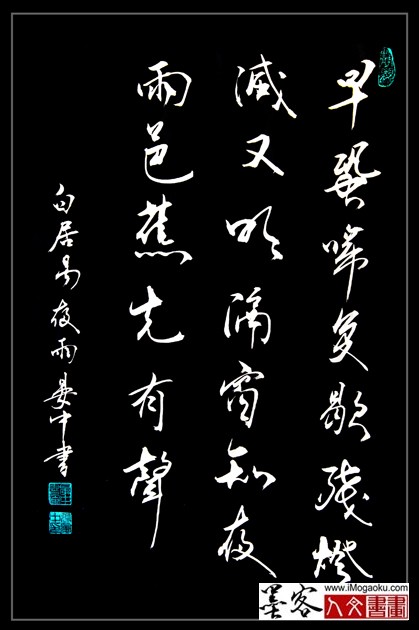 早蛩啼复歇残燈
滅又明隔窗知夜
雨芭蕉先有聲
白居易夜雨晏中書
墨客
www.iMogaoku.com
人文書畫